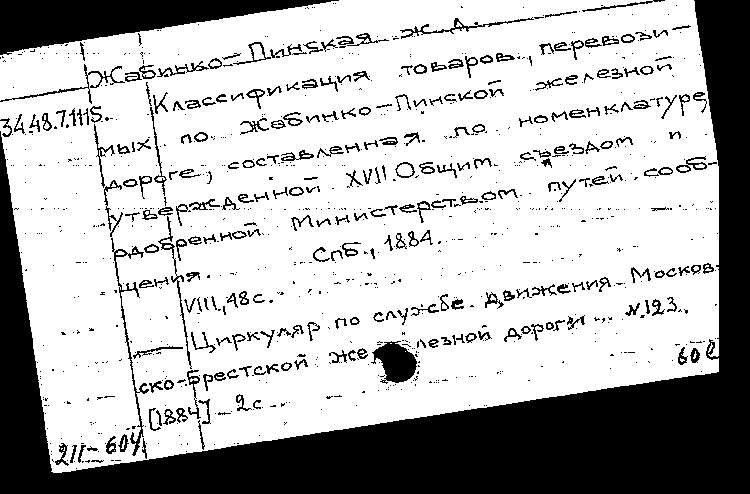 Жабинко-Пинская ж. д.
34.48.7.1115.
Классификация товаров, перевози-
мых по Жабинко-Пинской железной
дороге, составленная по номенклатуре,
утвержденной XVII Общим съездом и
одобренной Министерством путей сооб-
щения. Спб., 1884.
VIII, 48 с.
Циркуляр по службе движения Москов-
ско-Брестской железной дороги... N.123.
[1884] 2 с
211-604